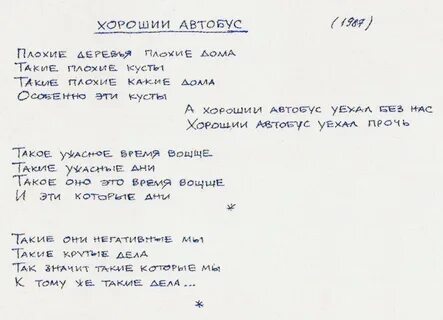 ХОРОШИЙ АВТОБУС (1987)
ПЛОХИЕ ДЕРЕВЬЯ ПЛОХИЕ ДОМА
ТАКИЕ ПЛОХИЕ КУСТЫ
ТАКИЕ ПЛОХИЕ КАКИЕ ДОМА
ОСОБЕННО ЭТИ КУСТЫ
А ХОРОШИЙ АВТОБУС УЕХАЛ БЕЗ НАС
ХОРОШИЙ АВТОБУС УЕХАЛ ПРОЧЬ
ТАКОЕ УЖАСНОЕ ВРЕМЯ ВОЩЩЕ
ТАКИЕ УЖАСНЫЕ ДНИ
ТАКОЕ ОНО ЭТО ВРЕМЯ ВОЩЩЕ
И ЭТИ КОТОРЫЕ ДНИ
*
ТАКИЕ ОНИ НЕГАТИВНЫЕ МЫ
ТАКИЕ КРУТЫЕ ДЕЛА
ТАК ЗНАЧИТ ТАКИЕ КОТОРЫЕ МЫ
К ТОМУ ЖЕ ТАКИЕ ДЕЛА...
*